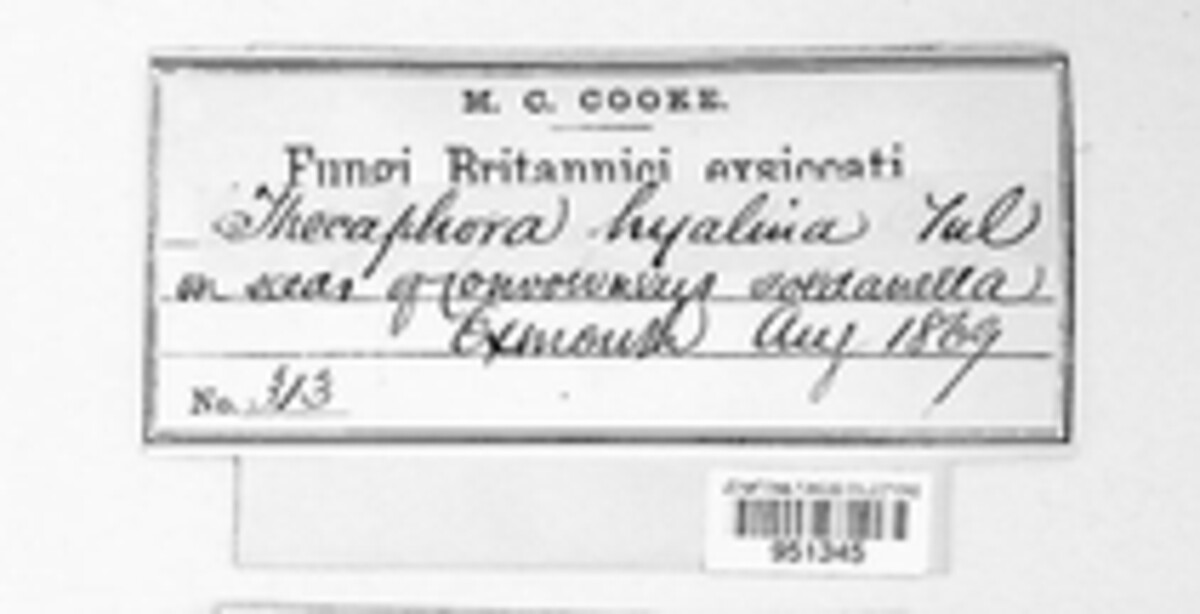 M. C. COOKE.
Fungi Britannici exsiccati
Thecaphora hyalina Tul
on seeds of Convolvulus soldanella
Exmouth Aug 1869
No. 313
951345